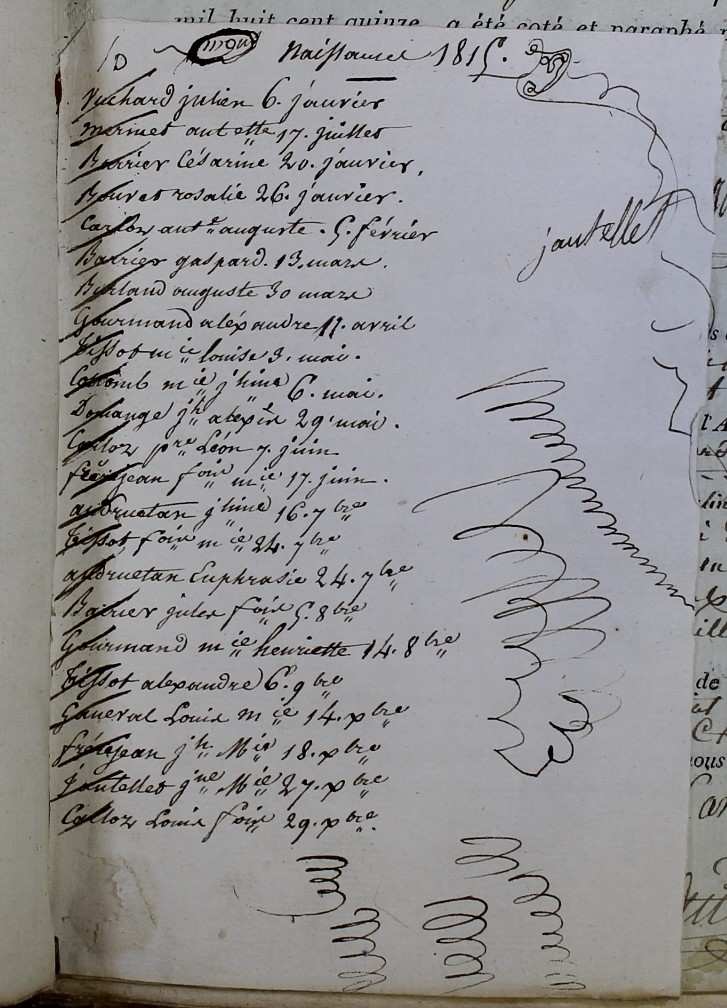 mil huit cent quinze, a été coté et paraphé
naissances 1815.
Vuchard julien 6. janvier
mermet ant.ette 17. juillet
Barrier Césarine 20. janvier.
Bouvet rosalie 26. janvier.
Carloz ant.e auguste. 5. février
Barrier gaspard. 13. mars.
jantellet
Burland auguste 30 mars
Gourmand aléxandre 11. avril
tissot m.ie louise 3. mai.
Colomb m.ie j.hine 6. mai.
Domange j.h alex.re 29. mai.
Carloz p.re Léon 7. juin
frérejean f.oise m.ie 17. juin.
andruetan j.hine 16. 7.bre
tissot f.oise m.ie 24. 7.bre
andruetan Euphrasie 24. 7.bre
Barrier jules f.ois 5. 8.bre
Gourmand m.ie henriette 14. 8.bre
tissot alexandre 6. 9.bre
Géneval Louis m.ie 14. x.bre
frérejean j.h M.ie 18. x.bre
jantellet j.ne M.ie 27. x.bre
Carloz Louis f.ois 29. x.bre